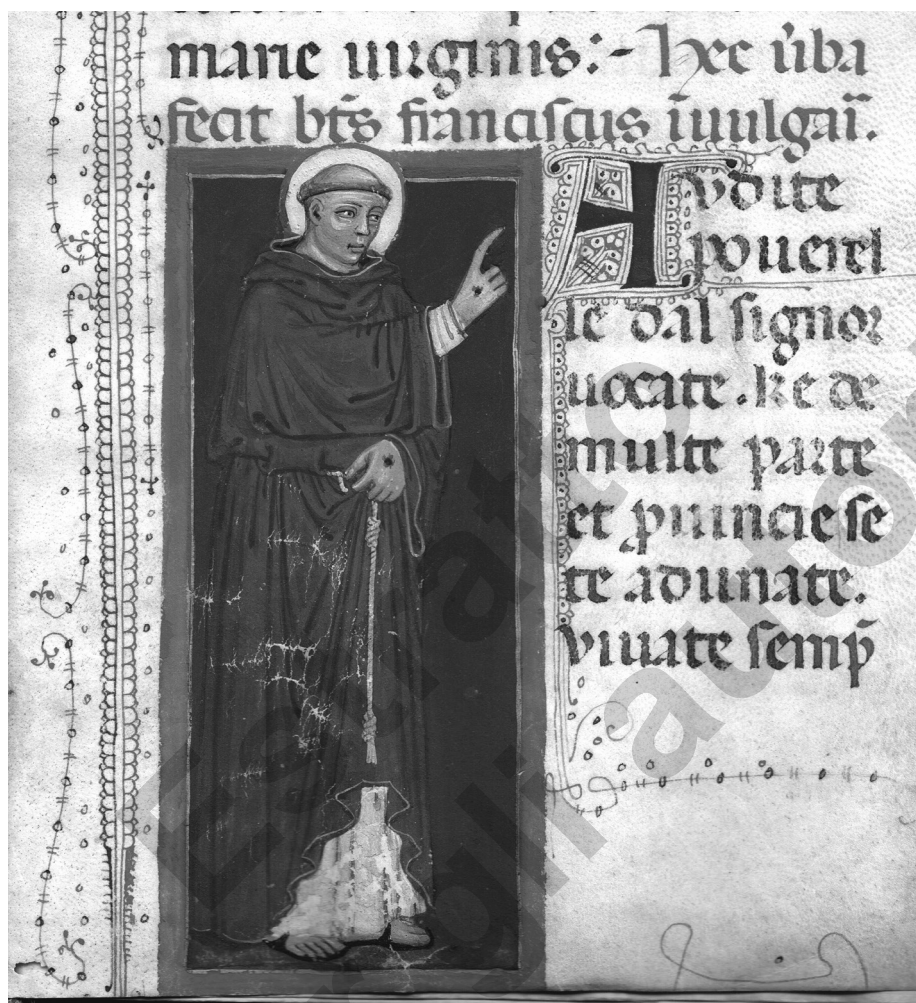 marie uirginis:- Hec ūba
fecit bt̄s franciscus ī uulgarī.
Audite
pouerel
le dal signor
uocate. ke de
multe parte
et ꝓuincie se
te adunate.
Viuate semp̄
Estratto
gli autori